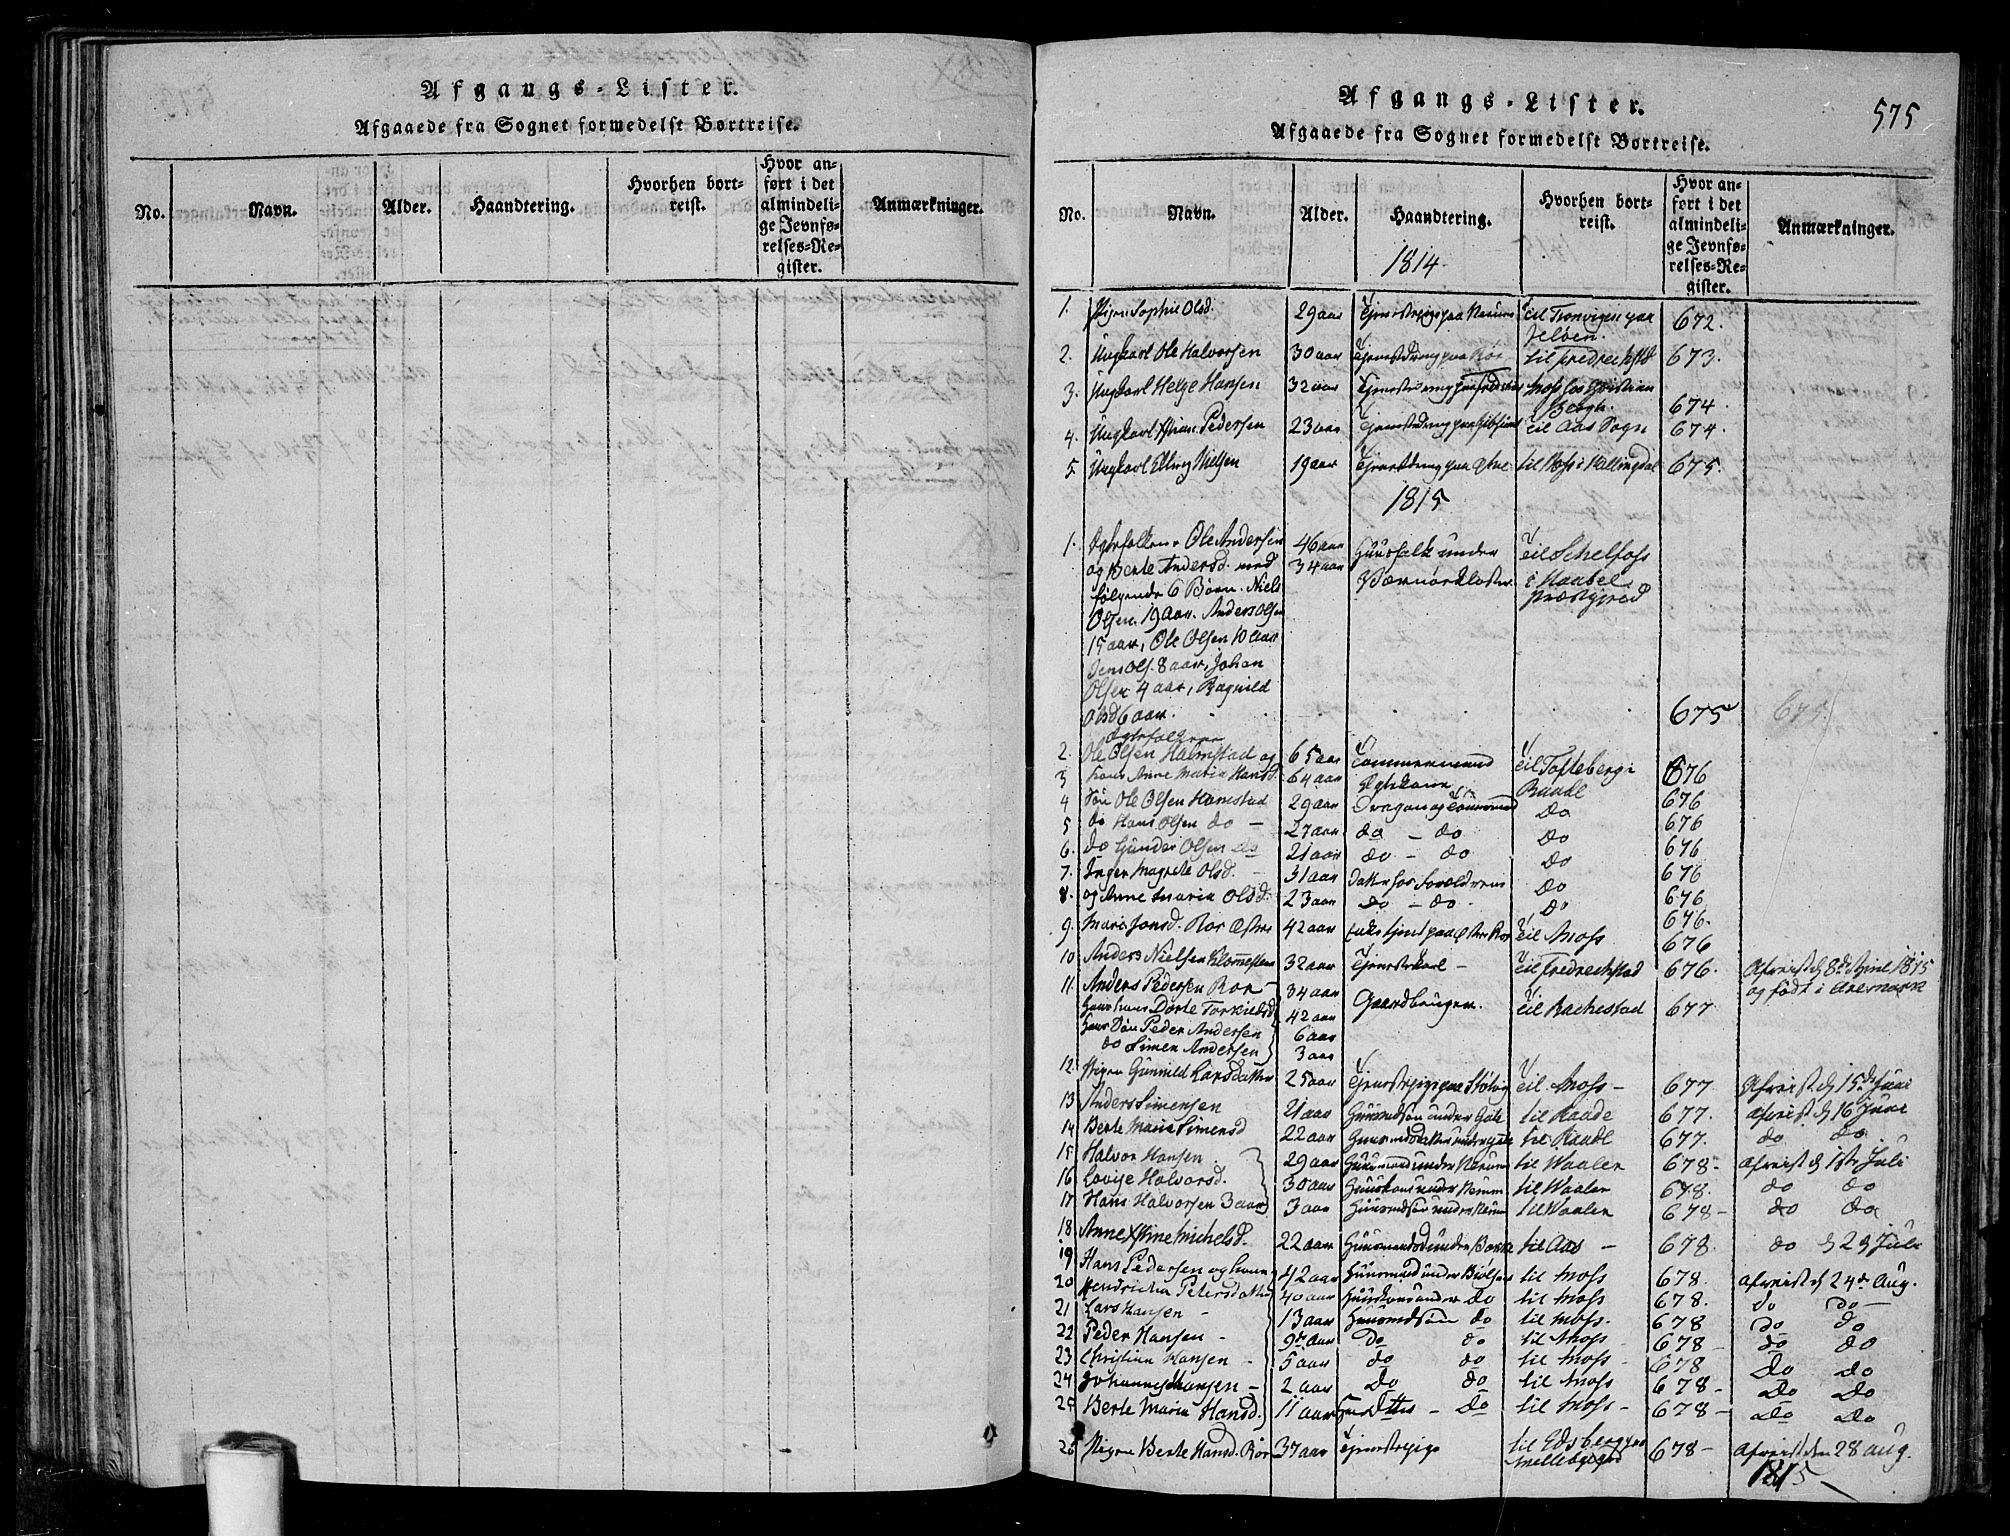 Afgangs-Lister.
Afgaaede fra Sognet formedelst Bortreise.
No. Navn. Alder. Haandtering. Hvorhen bort-reist. Hvor an-ført i det almindeli-ge Jevnfø-relses-Re-gister. Anmærkninger.
Afgangs-Lister.
575
Afgaaede fra Sognet formedelst Bortreise.
No. Navn. Alder. Haandtering. Hvorhen bort-reist. Hvor an-ført i det almindeli-ge Jevnfø-relses-Re-gister. Anmærkninger.
1814.
1. Pigen Sophie Olsd. 29 aar Tjenestepige paa til Tronvigen paa 672.
Jeløen.
2. Ungkarl Ole Halvorsen 30 aar Tjenestdreng paa Rör til Fredrechst 673.
3. Ungkarl Helge Hansen 32 aar Tjenestdreng paa Moss hos Christian
Bergh. 674.
4. Ungkarl Pedersen 23 aar Tjenestdreng paa til Aas Sogn 674.
5. Ungkarl Elling Nielsen 19 aar Tjenestdreng paa til i Hallingdal 675.
1815
1. Ægtefolkene Ole Andersen 46 aar Huusfolk under Til Schelfoss
og Berte Andersd. med 34 aar Værnöe Kloster i Haabel
følgende 6 Børn. Niels Præstegield
Olsen 19 aar. Anders Olsen
15 aar, Ole Olsen 10 aar
Jens Ols. 8 aar, Johan
Olsen 4 aar, Ragnild
Olsd 6 aar. 675 675
Ægtefolkene
2. Ole Olsen Halmstad og 65 aar Tömmermand Til Tofteberg i 676
3 Anne Maria Hansd. 64 aar Ægtekone Raade 676
4 Søn Ole Olsen Hamstad 29 aar Dragon og Do 676
5 do Hans Olsen do — 27 aar do — do Do 676
6. do Gunder Olsen do 21 aar do — do Do 676
7. Inger Magrete Olsd. — 31 aar Datter hos Forældrene Do 676
8. og Anne Maria Olsd. 23 aar do — do Do 676.
9. Maria Jonsd. Ror 42 aar paa Ror Til Moss 676
10 Anders Nielsen 32 aar Tjenestekarl — Til Fredrechstad 676. Afreist d. 8de April 1815
og født i Aremark
11. Anders Pedersen Ror — 34 aar Gaardbruger. Til Rachestad 677.
Dorte Torkildsd 42 aar
Søn Peder Andersen 6 aar
do Simen Andersen 3 aar
12. Pigen Gunnild Larsdatter 25 aar Tjenestepige paa Til Moss — 677 Afreist d. 15de Juni
13 Anders Simensen 21 aar Huusmdsön under til Raade 677. Afreist d. 16 Juni
14 Berte Maria Simensd 22 aar Huusmdsdatter under til Raade 677. do do
15 Halvor Hansen 29 aar Huusmand under til Waaler 678 — Afreist d. 1ste Juli
16 Lovise Halvorsd. 30 aar Huuskone under til Waaler 678. do do
17 Hans Halvorsen 3 aar 3 aar Huusmdsön under til Waaler 678 — do do
18 Anne Xstine Michelsd. 22 aar Huusmandsd under til Aas — 678. do d. 29 Juli
19 Hans Pedersen og 42 aar Huusmand under til Moss 678. Afreist d. 24de Aug.
20 Hendricha Petersdatter 40 aar Huuskone under do til Moss 678. do do —
21 Lars Hansen — 13 aar Huusmdsön do til Moss. 678 do do
22 Peder Hansen — 9 aar do do til Moss — 678 — do do
23 Christian Hansen — 5 aar do do til Moss — 678 Do Do
24 Johannes Hansen — 2 aar do do til Moss 678 — Do Do
25 Berte Maria Hansd. 11 aar — do til Moss — 678 — do Do
26 Pigen Berte Hansd. Rör 37 aar Tjenestepige til Edsberg 678 — Afreist den 28 Aug.
1815 —